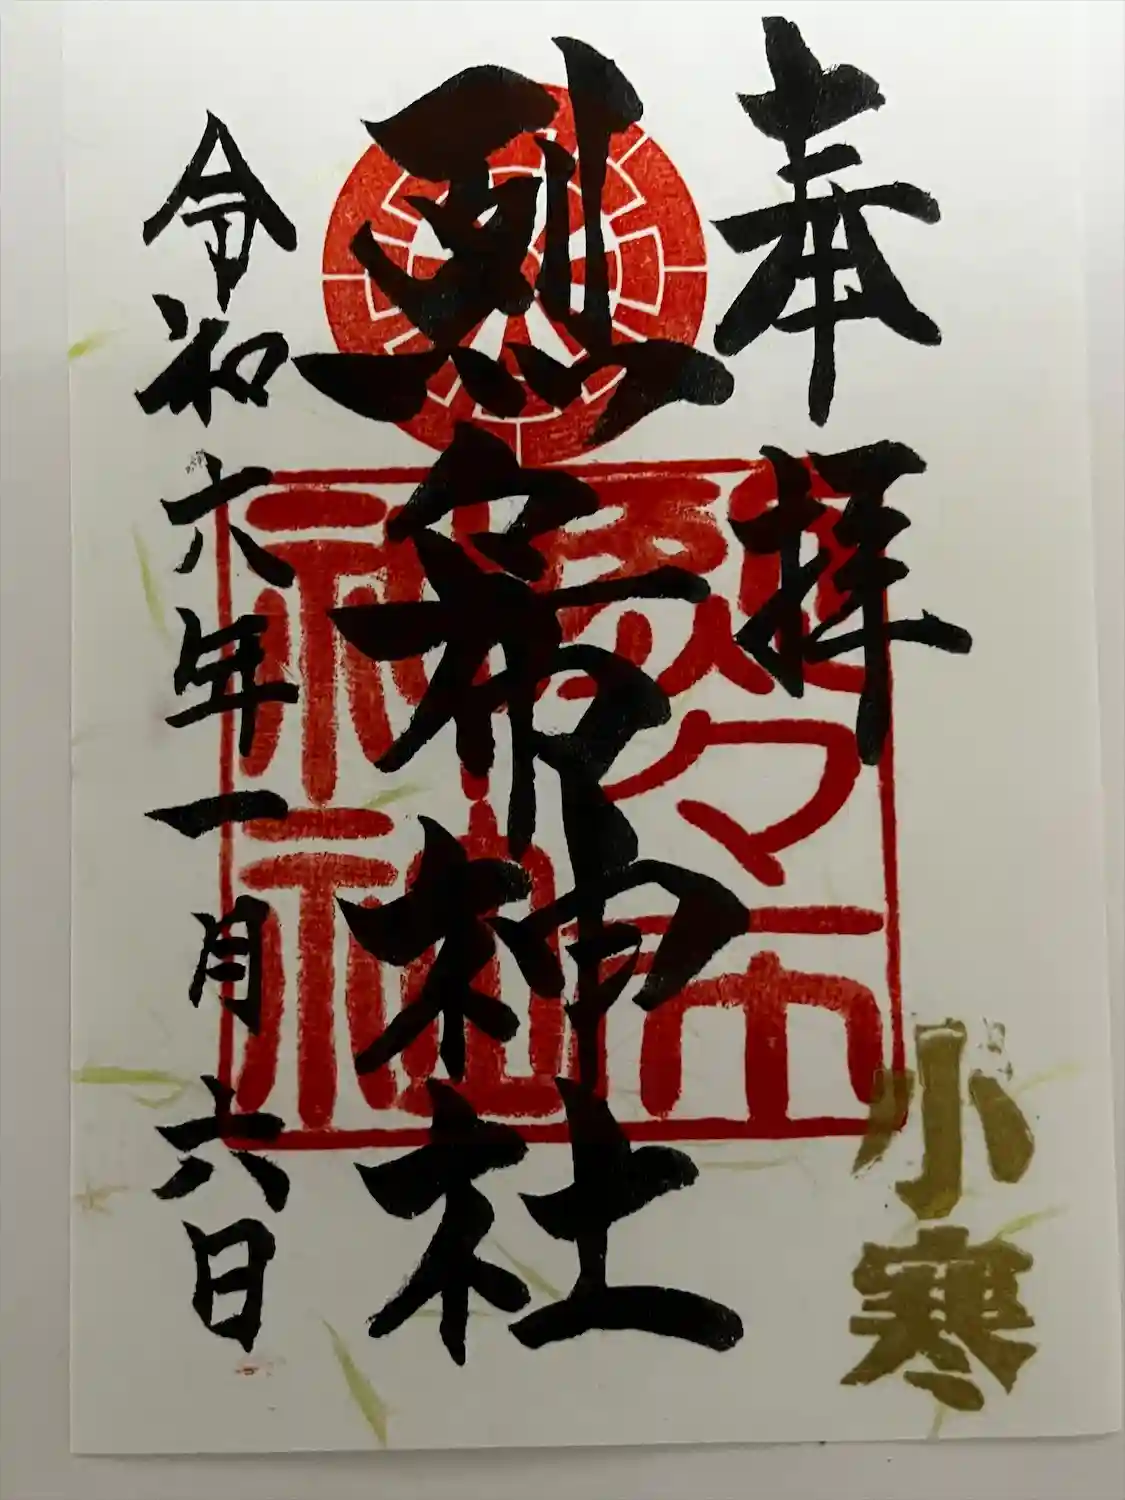 奉拝
小寒
烈々布神社
令和六年一月六日
烈々布
神社